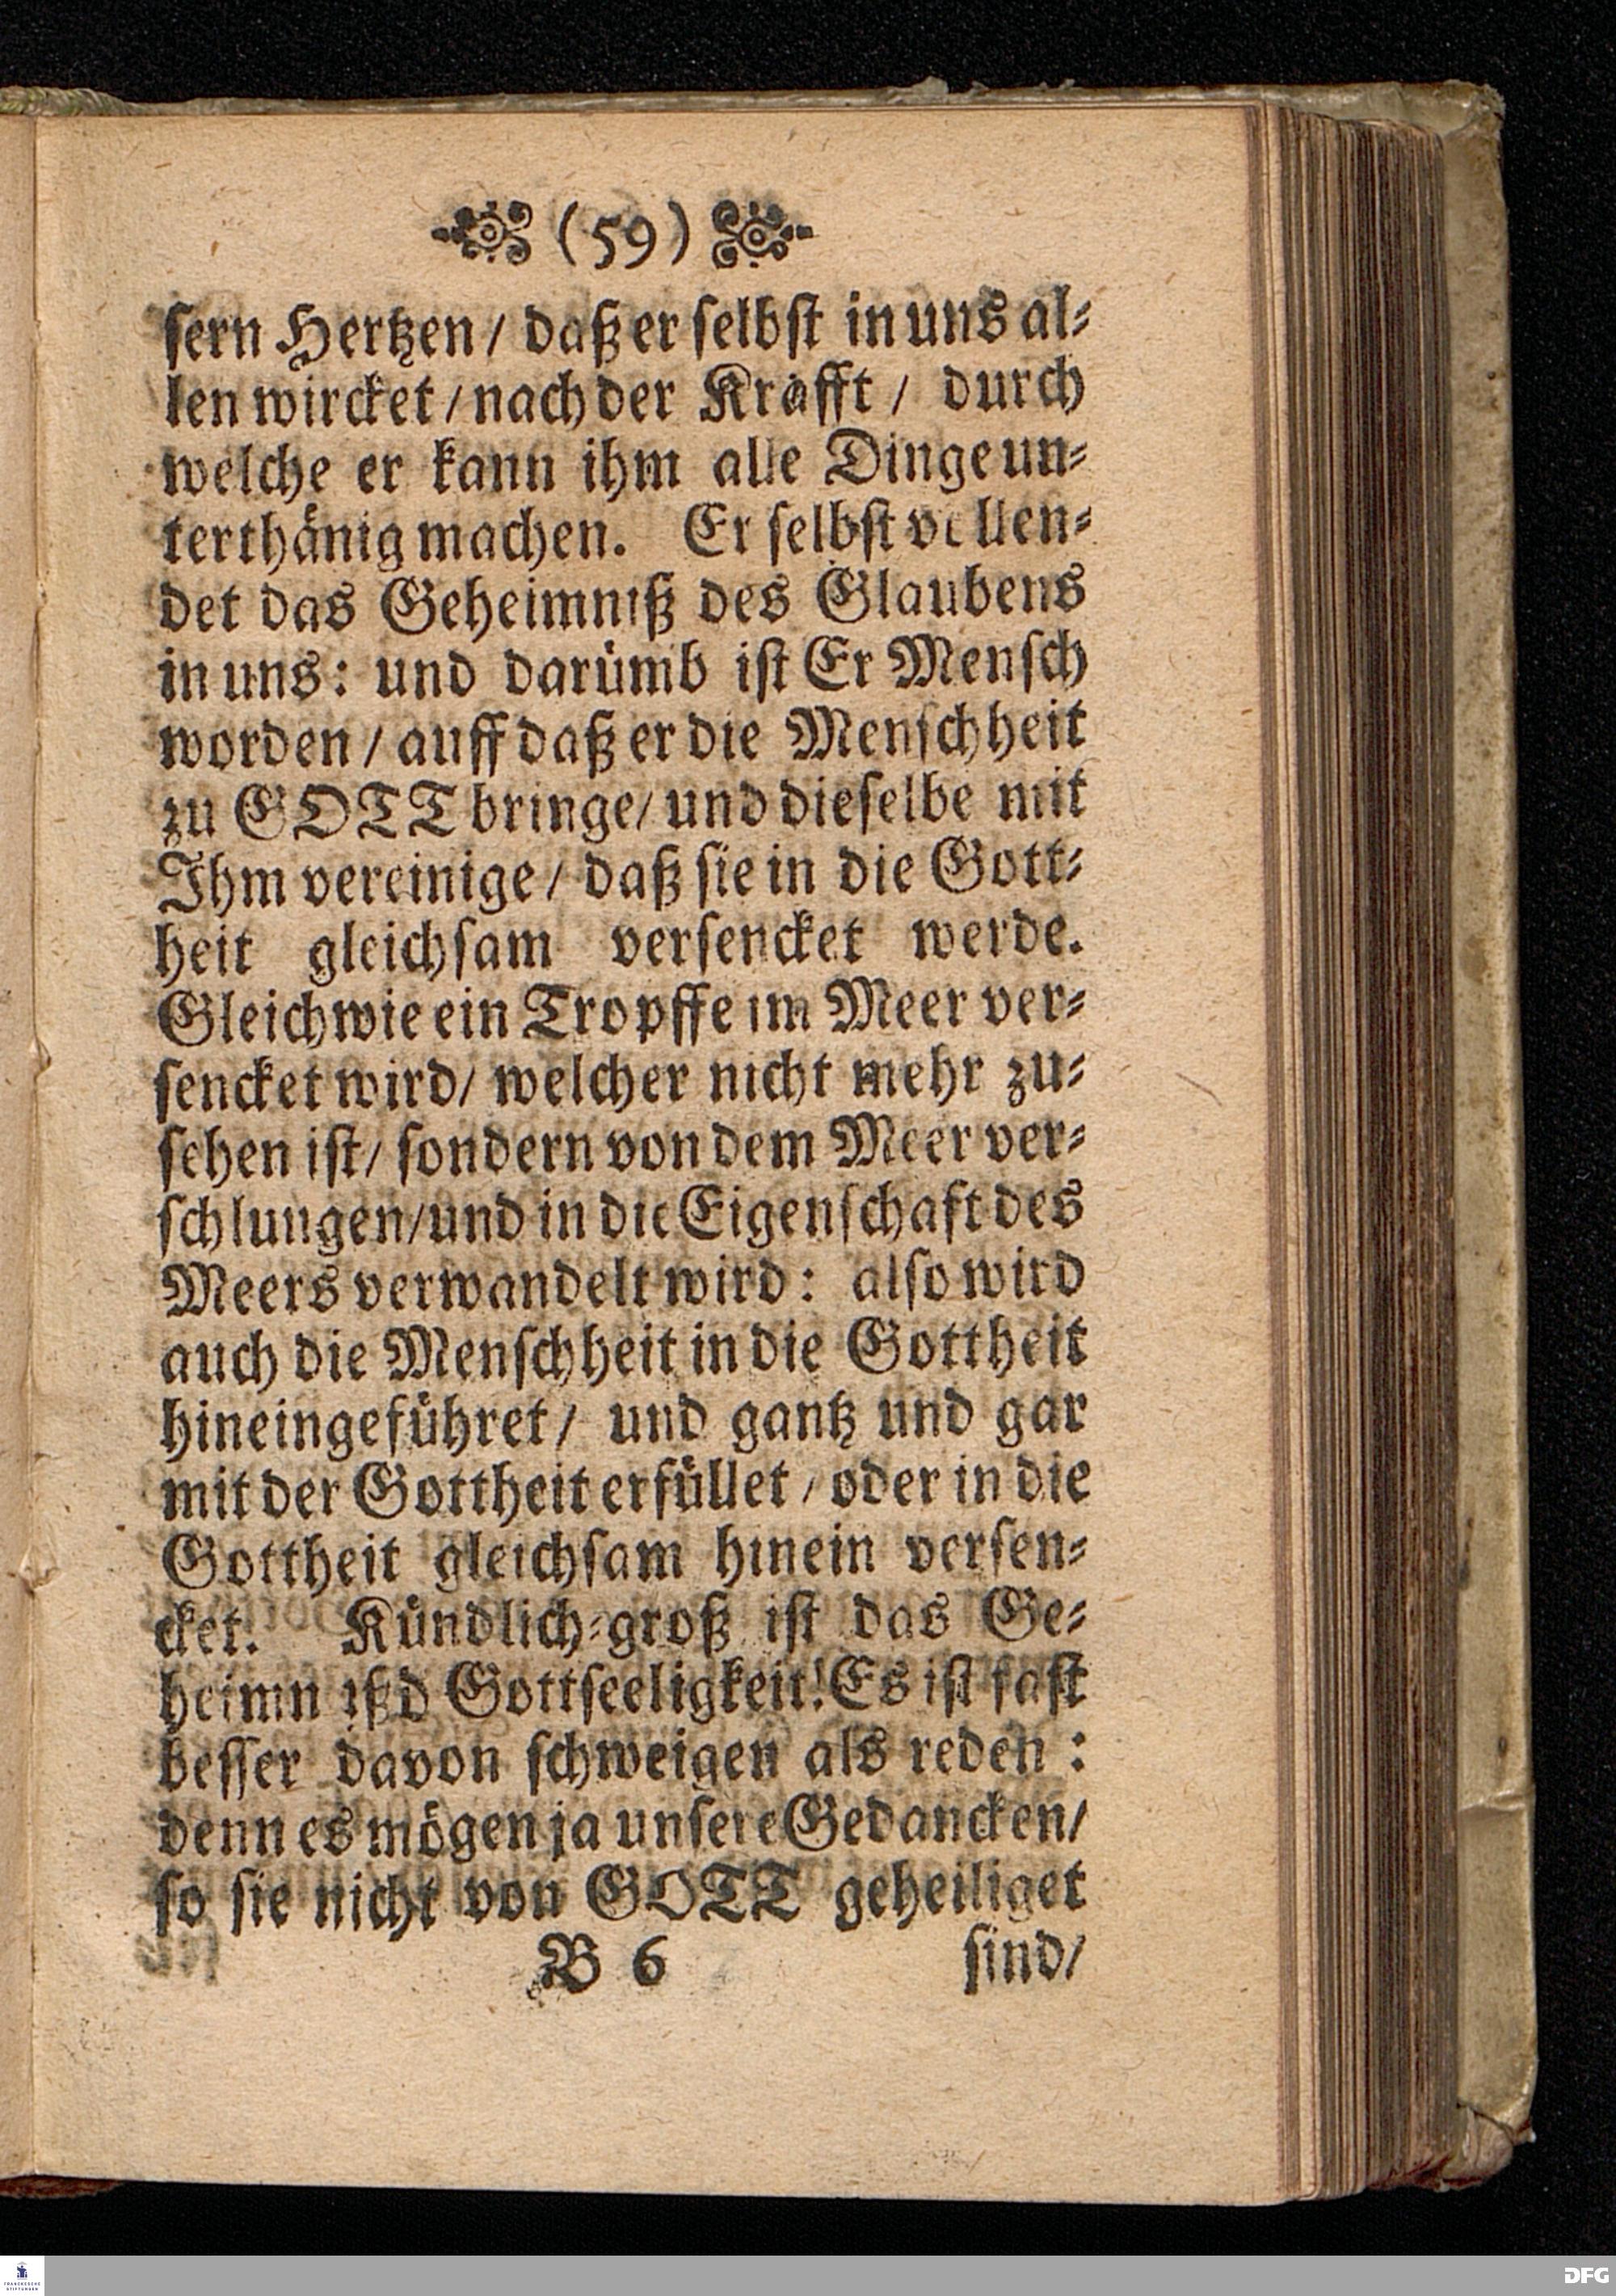 (59)
sern Hertzen / daß er selbst in uns al-
len wircket / nach der Krafft / durch
welche er kann ihm alle Dinge un-
terthänig machen. Er selbst vollen-
det das Geheimniß des Glaubens
in uns: und darümb ist Er Mensch
worden / auff daß er die Menschheit
zu GOTT bringe / und dieselbe mit
Ihm vereinige / daß sie in die Gott-
heit gleichsam versencket werde.
Gleichwie ein Tropffe im Meer ver-
sencket wird / welcher nicht mehr zu-
sehen ist / sondern von dem Meer ver-
schlungen / und in die Eigenschaft des
Meers verwandelt wird: also wird
auch die Menschheit in die Gottheit
hineingeführet / und gantz und gar
mit der Gottheit erfüllet / oder in die
Gottheit gleichsam hinein versen-
cket. Kündlich-groß ist das Ge-
heimn ißd Gottseeligkeit! Es ist fast
besser davon schweigen als reden:
denn es mögen ja unsere Gedancken /
so sie nicht von GOTT geheiliget
B 6 sind /
FRANCKESCHE STIFTUNGEN DFG